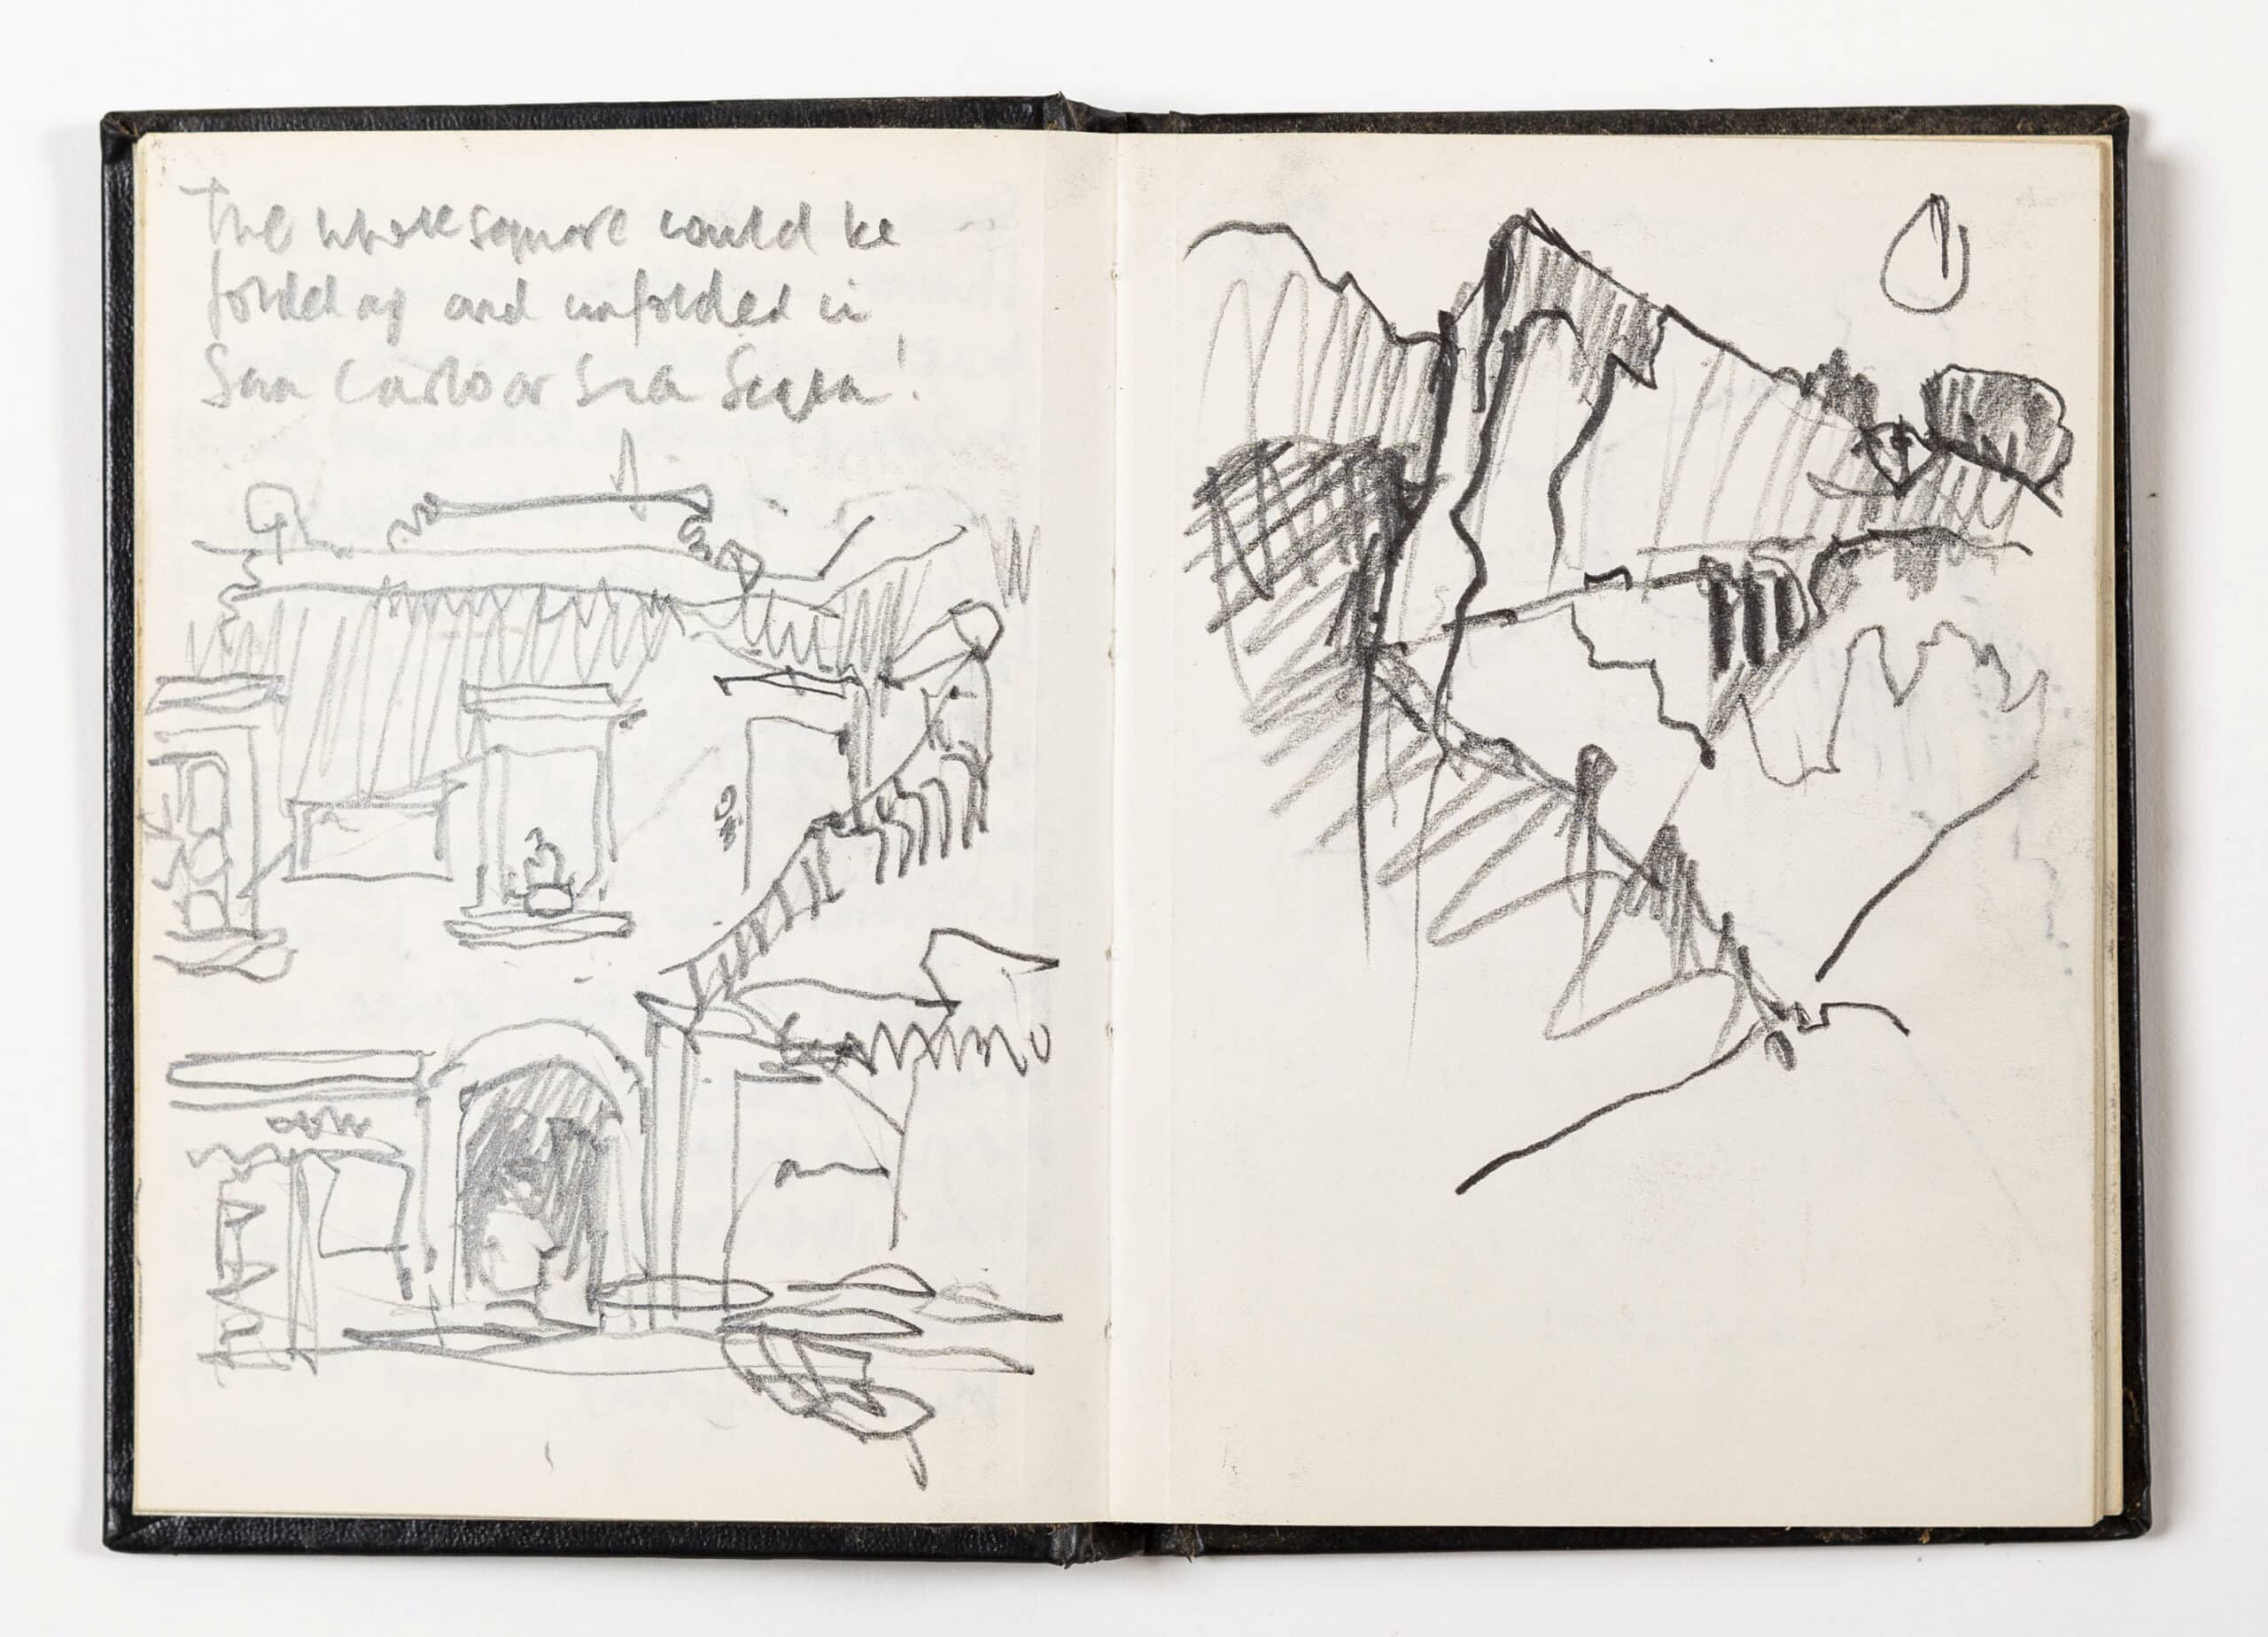 The whole square could be
folded up and unfolded in
San Carlo or